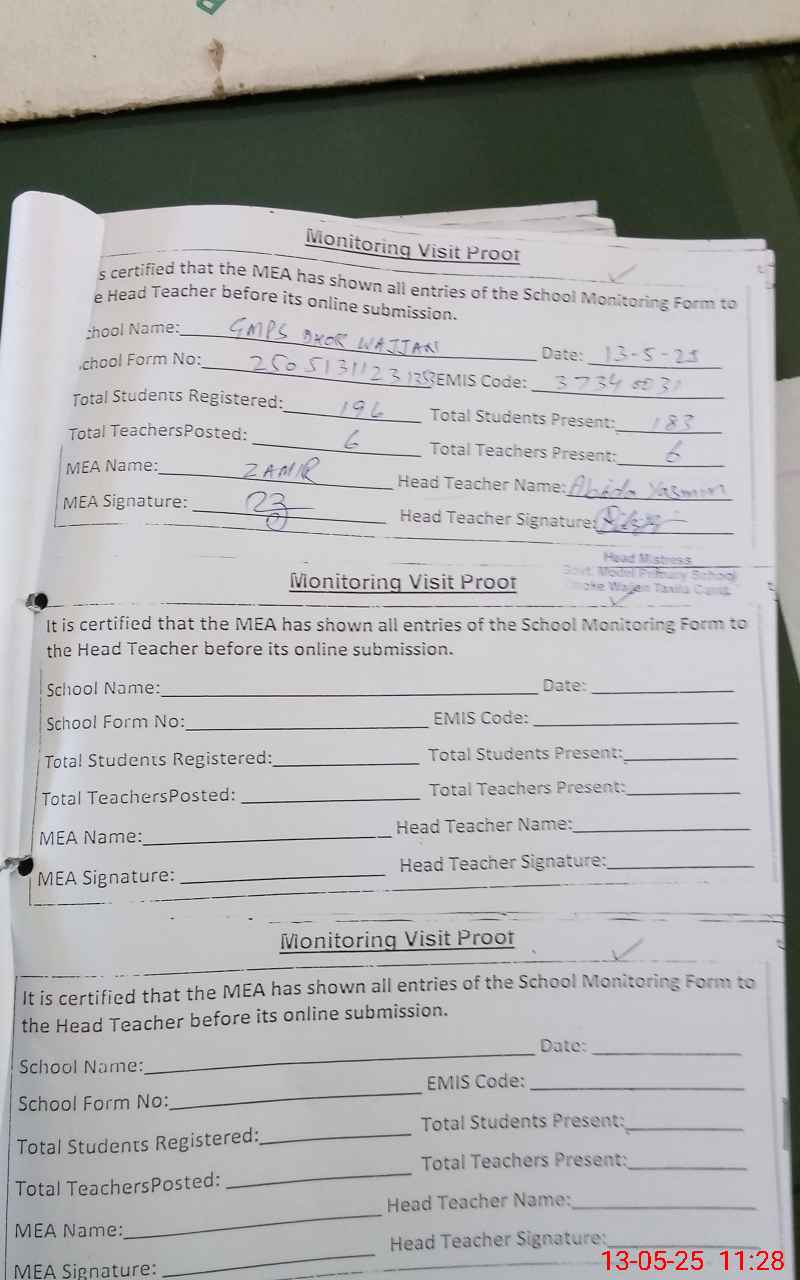 Monitoring Visit Proof
s certified that the MEA has shown all entries of the School Monitoring Form to
e Head Teacher before its online submission.
chool Name: GMPS DHOR WAJJAN Date: 13-5-25
chool Form No: EMIS Code:
Total Students Registered: 196 Total Students Present: 183
Total TeachersPosted: 6 Total Teachers Present: 6
MEA Name: ZAMIR Head Teacher Name: Abida Yasmin
MEA Signature: Head Teacher Signature:
Head Mistress
Govt. Model Primary School
Wajan Taxila Cantt
Monitoring Visit Proof
It is certified that the MEA has shown all entries of the School Monitoring Form to
the Head Teacher before its online submission.
School Name: Date:
School Form No: EMIS Code:
Total Students Registered: Total Students Present:
Total TeachersPosted: Total Teachers Present:
MEA Name: Head Teacher Name:
MEA Signature: Head Teacher Signature:
Monitoring Visit Proof
It is certified that the MEA has shown all entries of the School Monitoring Form to
the Head Teacher before its online submission.
School Name: Date:
School Form No: EMIS Code:
Total Students Registered: Total Students Present:
Total TeachersPosted: Total Teachers Present:
MEA Name: Head Teacher Name:
MEA Signature: Head Teacher Signature:
13-05-25 11:28